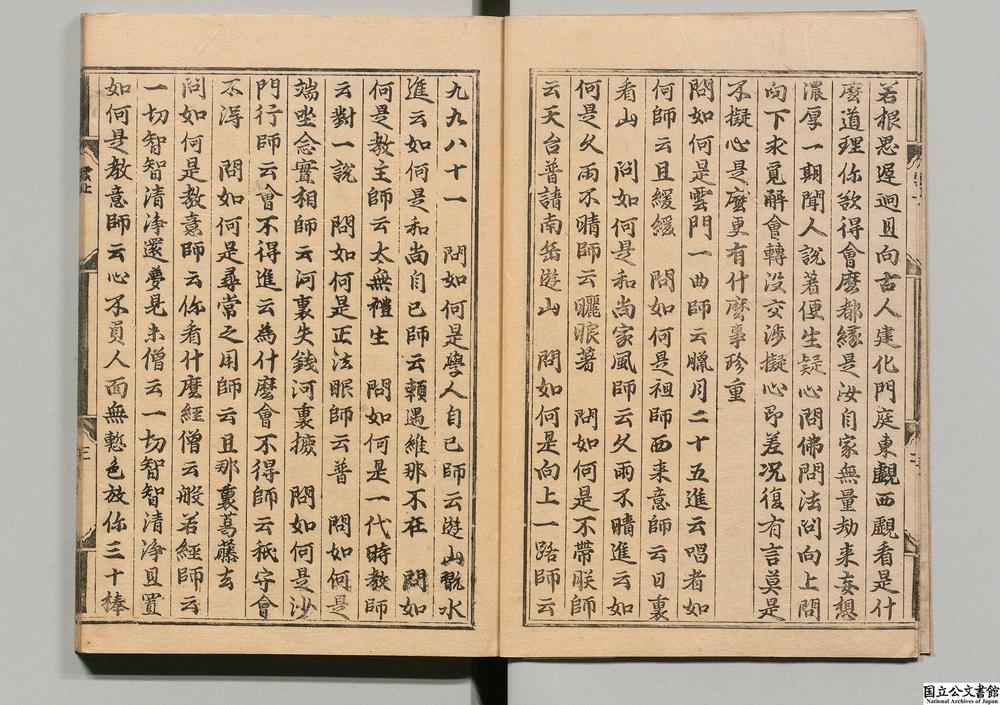 若根思遲迴且向古人建化門庭東覰西覰看是什
麽道理你欲得會麽都緣是汝自家無量劫來妄想
濃厚一期聞人說著便生疑心問佛問法問向上問
向下求覓解會轉沒交涉擬心即差况復有言莫是
不擬心是麽更有什麽事珍重
問如何是雲門一曲師云臘月二十五進云唱者如
何師云且緩緩　問如何是祖師西来意師云日裏
看山　問如何是和尚家風師云久雨不晴進云如
何是久雨不晴師云曬眼著　問如何是不帶眹師
云天台普請南岳遊山　問如何是向上一路師云
九九八十一　問如何是學人自己師云遊山翫水
進云如何是和尚自己師云頼遇維那不在　問如
何是教主師云太無禮生　問如何是一代時教師
云對一說　問如何是正法眼師云普　問如何是
端坐念實相師云河裏失錢河裏摝　問如何是沙
門行師云會不得進云為什麽會不得師云秖守會
不得　問如何是尋常之用師云且那裏葛藤去
問如何是教意師云你看什麽經僧云般若經師云
一切智智清淨還夢見未僧云一切智智清淨且置
如何是教意師云心不負人面無慙色放你三十棒
三
国立公文書館
National Archives of Japan